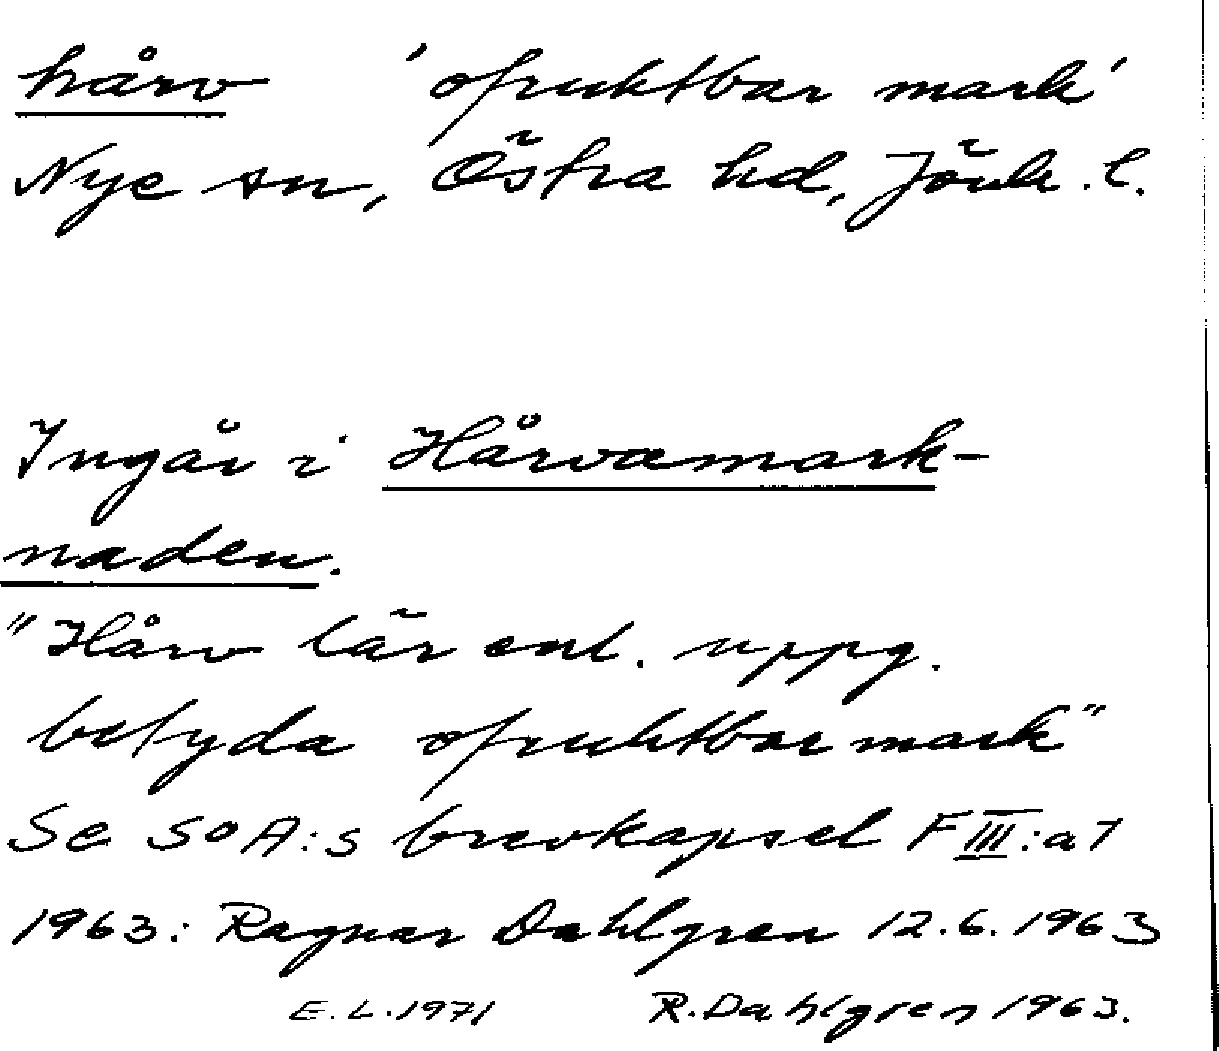 hårv 'ofruktbar mark'
Nye sn, Östra hd, Jönk. l.
Ingår i Hårvamark-
naden.
"Hårv lär enl. uppg.
betyda ofruktbar mark"
Se SOA:s brevkapsel F III:a 7
1963: Ragnar Dahlgren 12.6.1963
E.L.1971 R.Dahlgren 1963.